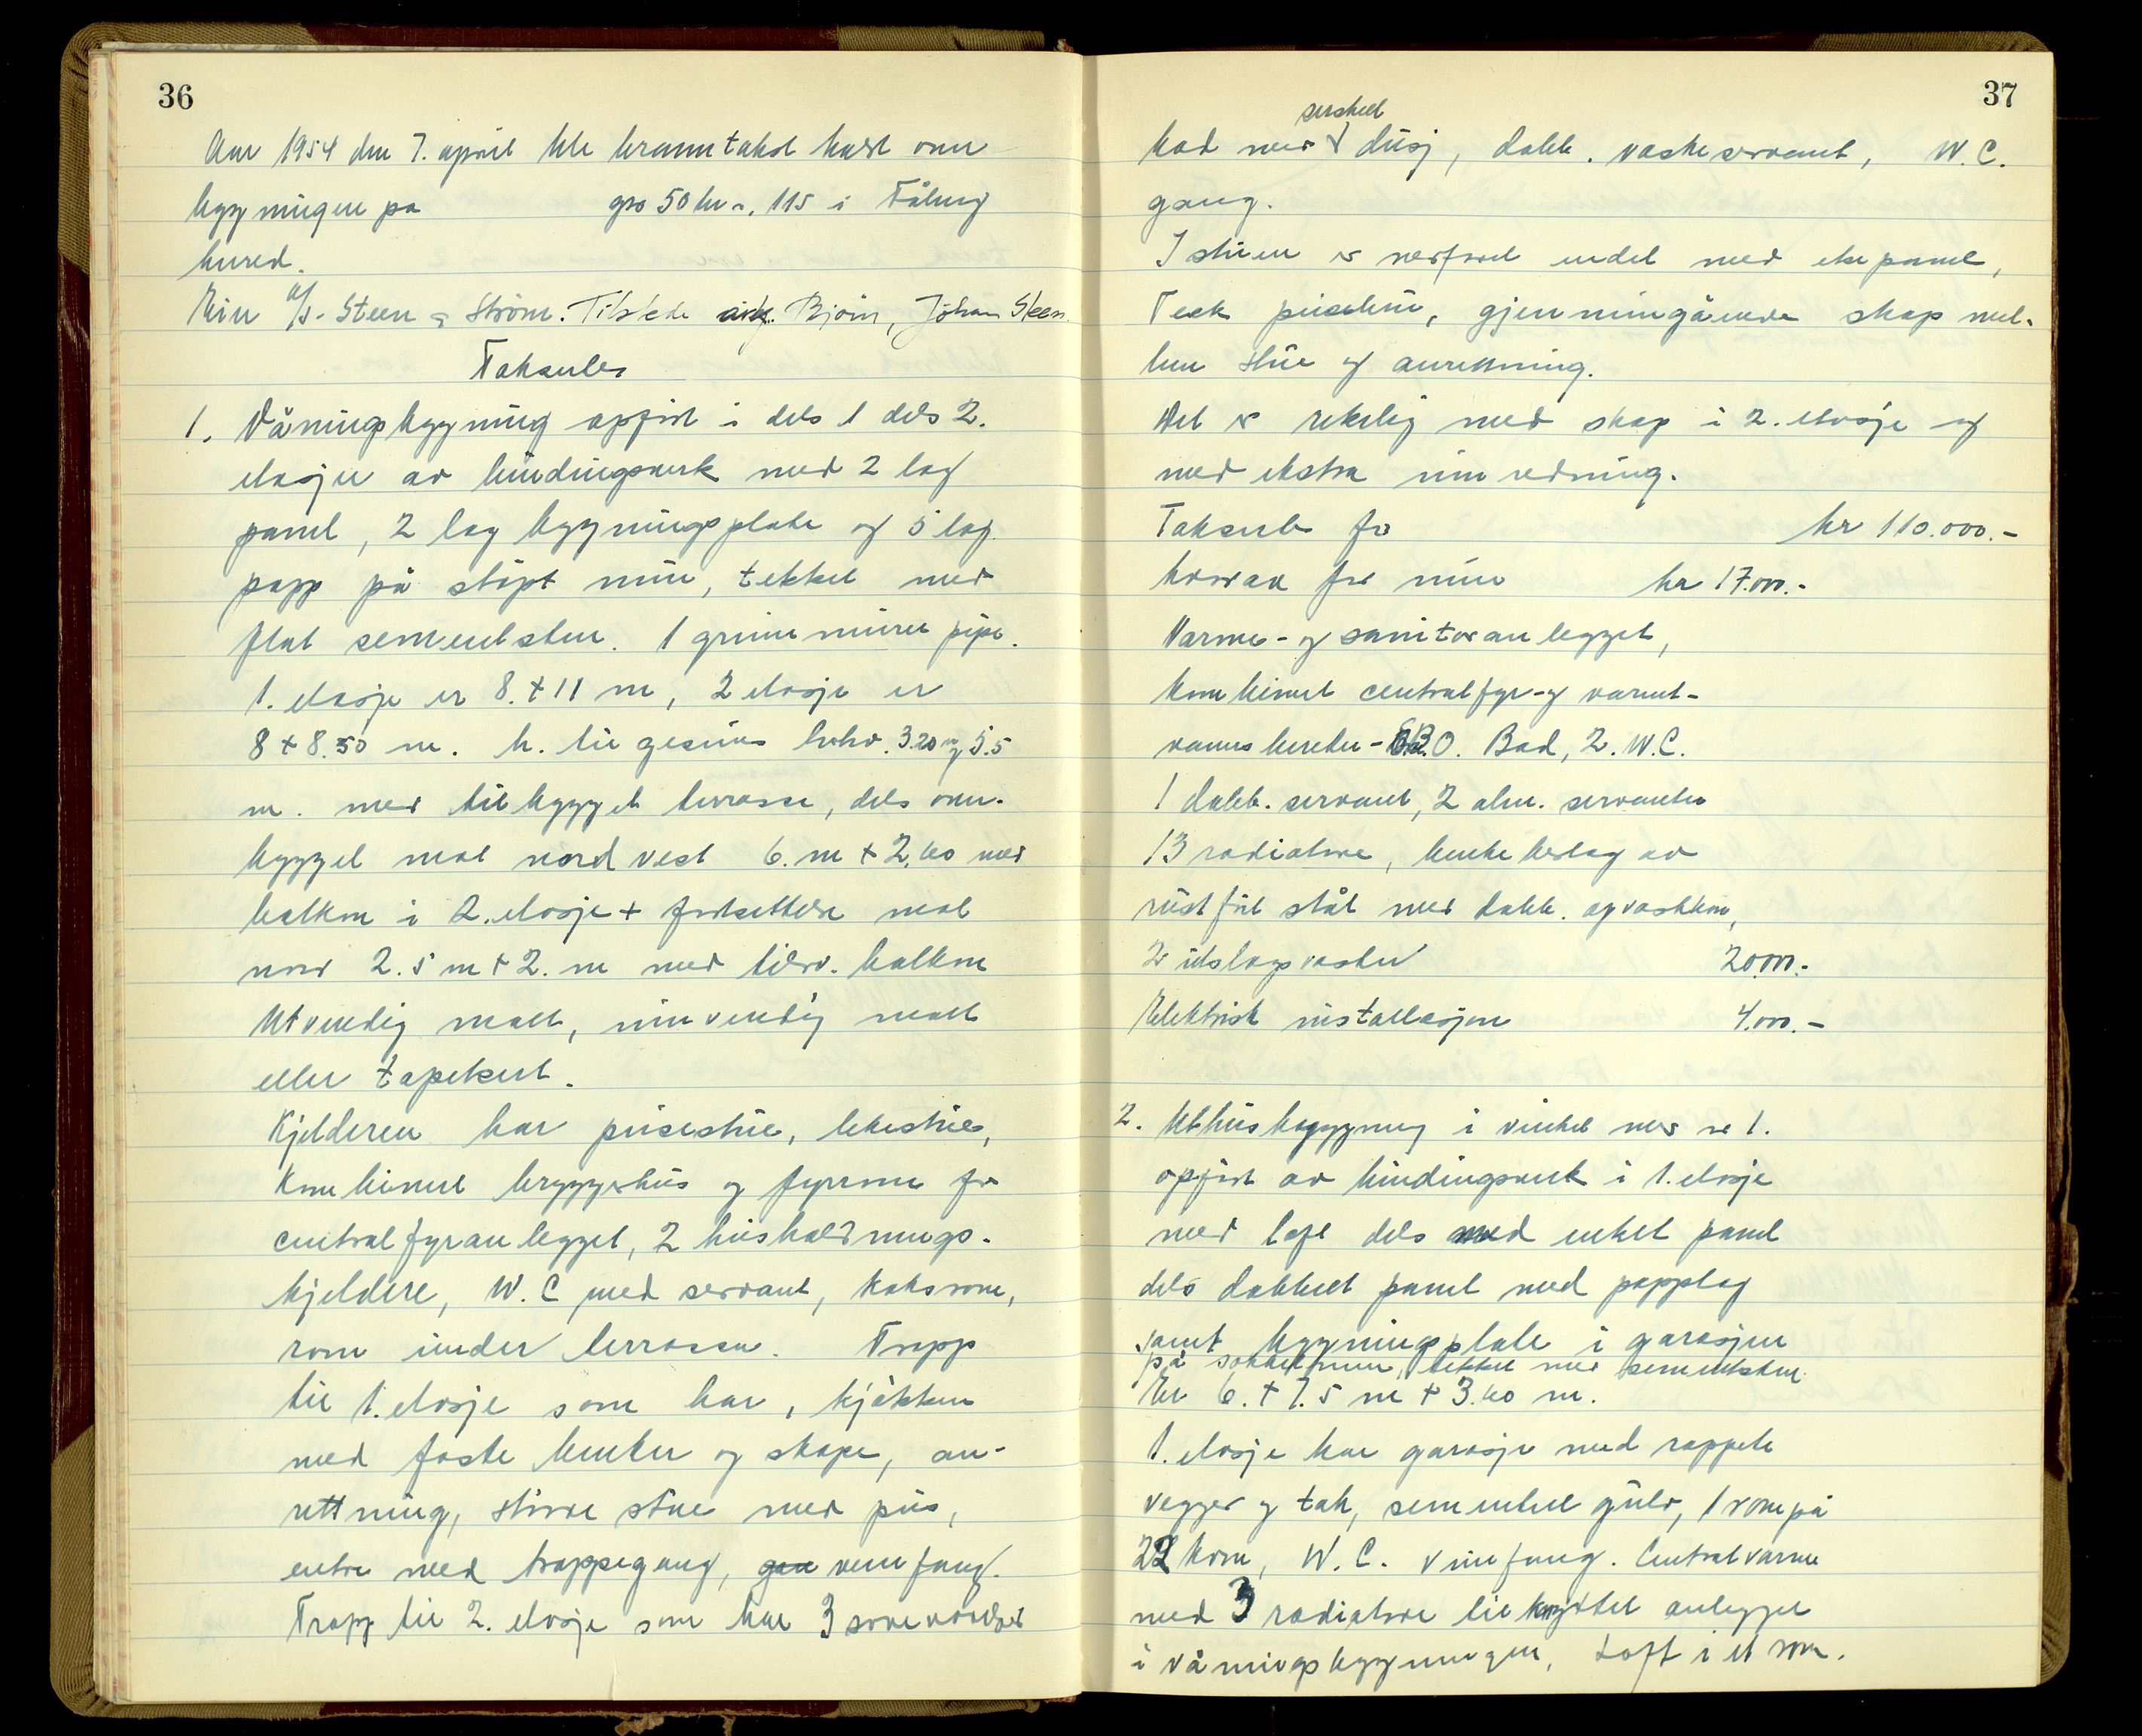 36
Aar 1954 den 7. april ble branntakst holdt over
bygningen på gno 50 bn. 115 i Tåling
hered.
Eier A/S. Steen & Strøm. Tilstede ark. Bjørn, Johan Steen.
Taksules
1. Våningsbygning oppført i dels 1 dels 2.
etasjer av bindingsverk med 2 lag
panel, 2 lag bygningsplate og 5 lag
papp på støpt mur, tekket med
flat sementsten. 1 grunnmuret pipe.
1. etasje er 8. + 11 m, 2 etasje er
8 + 8.50 m. h. til gesims hvhv. 3.20 og 5.5
m. med tilbygget terrasse, dels over-
bygget mot nordvest 6. m + 2.60 med
balkon i 2. etasje + fortsettelse mot
nord 2.5 m + 2. m med tilsv. balkon
Utvendig malt, innvendig malt
eller tapetsert.
Kjelderen har peisestue, lekestue,
Kombinert bryggerhus og fyrrom for
centralfyranlegget, 2 husholdnings-
kjeldere, W.C med servant, koksrom,
rom under terrassen. Trapp
til 1. etasje som har, kjøkken
med faste benker og skape, an-
rettning, større stue med peis,
entre med trappegang, gan vennfang.
Trapp til 2. etasje som har 3 soveværelser
37
serskilt
bad med V dusj, dobb. vaskeservant, W.C.
gang.
I stuen er nedforet endel med eke panel,
Teek peisehun, gjennomgående skap mel-
lem stue og anrettning.
Det er rikelig med skap i 2. etasje og
med ekstra innredning.
Taksules for kr 110.000.-
hvorav for mur kr 17.000.-
Varme- og sanitæranlegget,
kombinert centralfyr- og varmt-
vannsbereder - O. Bad, 2. W.C.
1 dobb. servant, 2 alm. servanter
13 radiatore, benkebeslag av
rustfrit stål med dobb. opvaskkum,
2 utslagsvasker 20.000.-
Elektrisk installasjon 4.000.-
2. Uthusbygygning i vinkel med nr 1.
oppført av bindingsverk i 1. etasje
med loft dels med enkel panel
dels dobbelt panel med papplag
samt bygningsplate i garasjen
på sokkelmur, tekket med sementsten
Er 6. + 7.5 m + 3.60 m.
1. etasje har garasje med rappete
vegger og tak, sementert gulv, 1 rom på
22 kvm, W.C. vinnfang. Centralvarme
med 3 radiatore tilknyttet anlegget
i våningsbygningen, Loft i et rom.